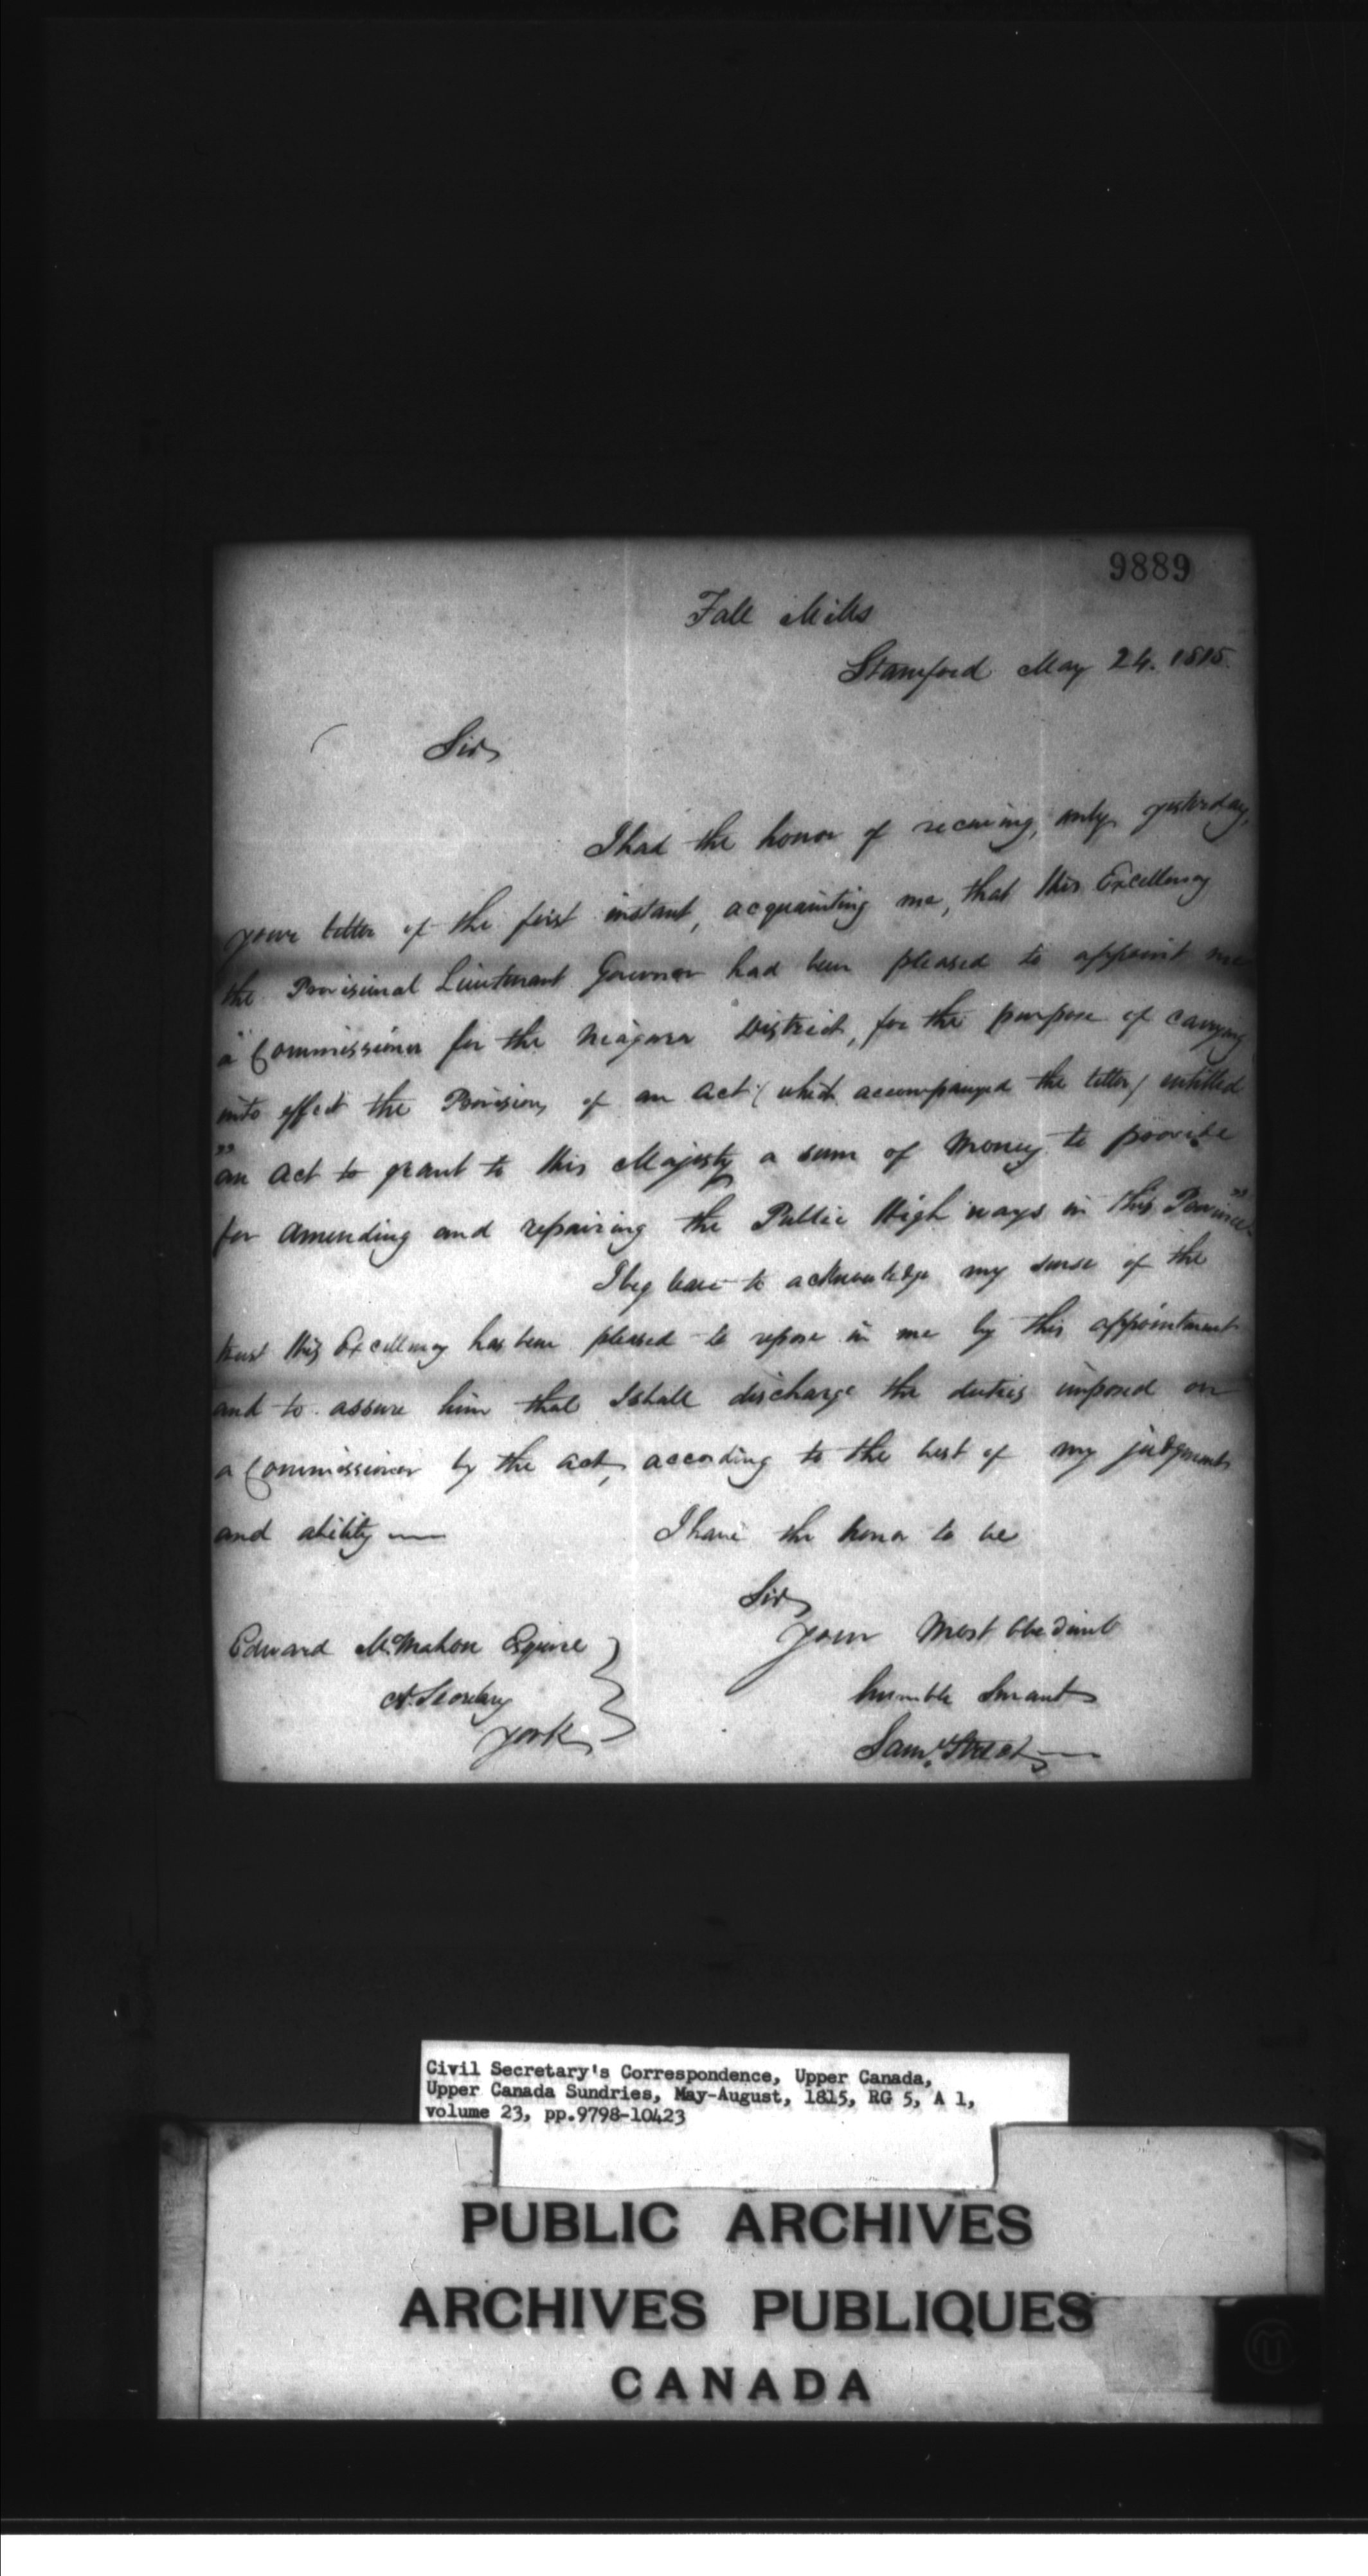 9889
Fall Mills
Stamford May 24. 1815.
Sir,
I had the honor of receiving, only yesterday,
your letter of the first instant, acquainting me, that His Excellency
the Provisional Lieutenant Governor had been pleased to appoint me
a Commissioner for the Niagara District, for the purpose of carrying
into effect the Provisions of an Act (which accompanyed the letter) entitled
"an Act to grant to His Majesty a sum of Money to provide
for Amending and repairing the Public High ways in this Province".
I beg leave to acknowledge my sense of the
trust His Excellency has been pleased to repose in me by this appointment
and to assure him that I shall discharge the duties imposed on
a Commissioner by the Act, according to the best of my judgment
and ability —
I have the honor to be
Sir,
your Most Obedient
humble Servant
Saml. Street
Edward McMahon Esquire
A. Secretary
York
Civil Secretary's Correspondence, Upper Canada,
Upper Canada Sundries, May-August, 1815, RG 5, A 1,
volume 23, pp.9798-10423
PUBLIC ARCHIVES
ARCHIVES PUBLIQUES
CANADA